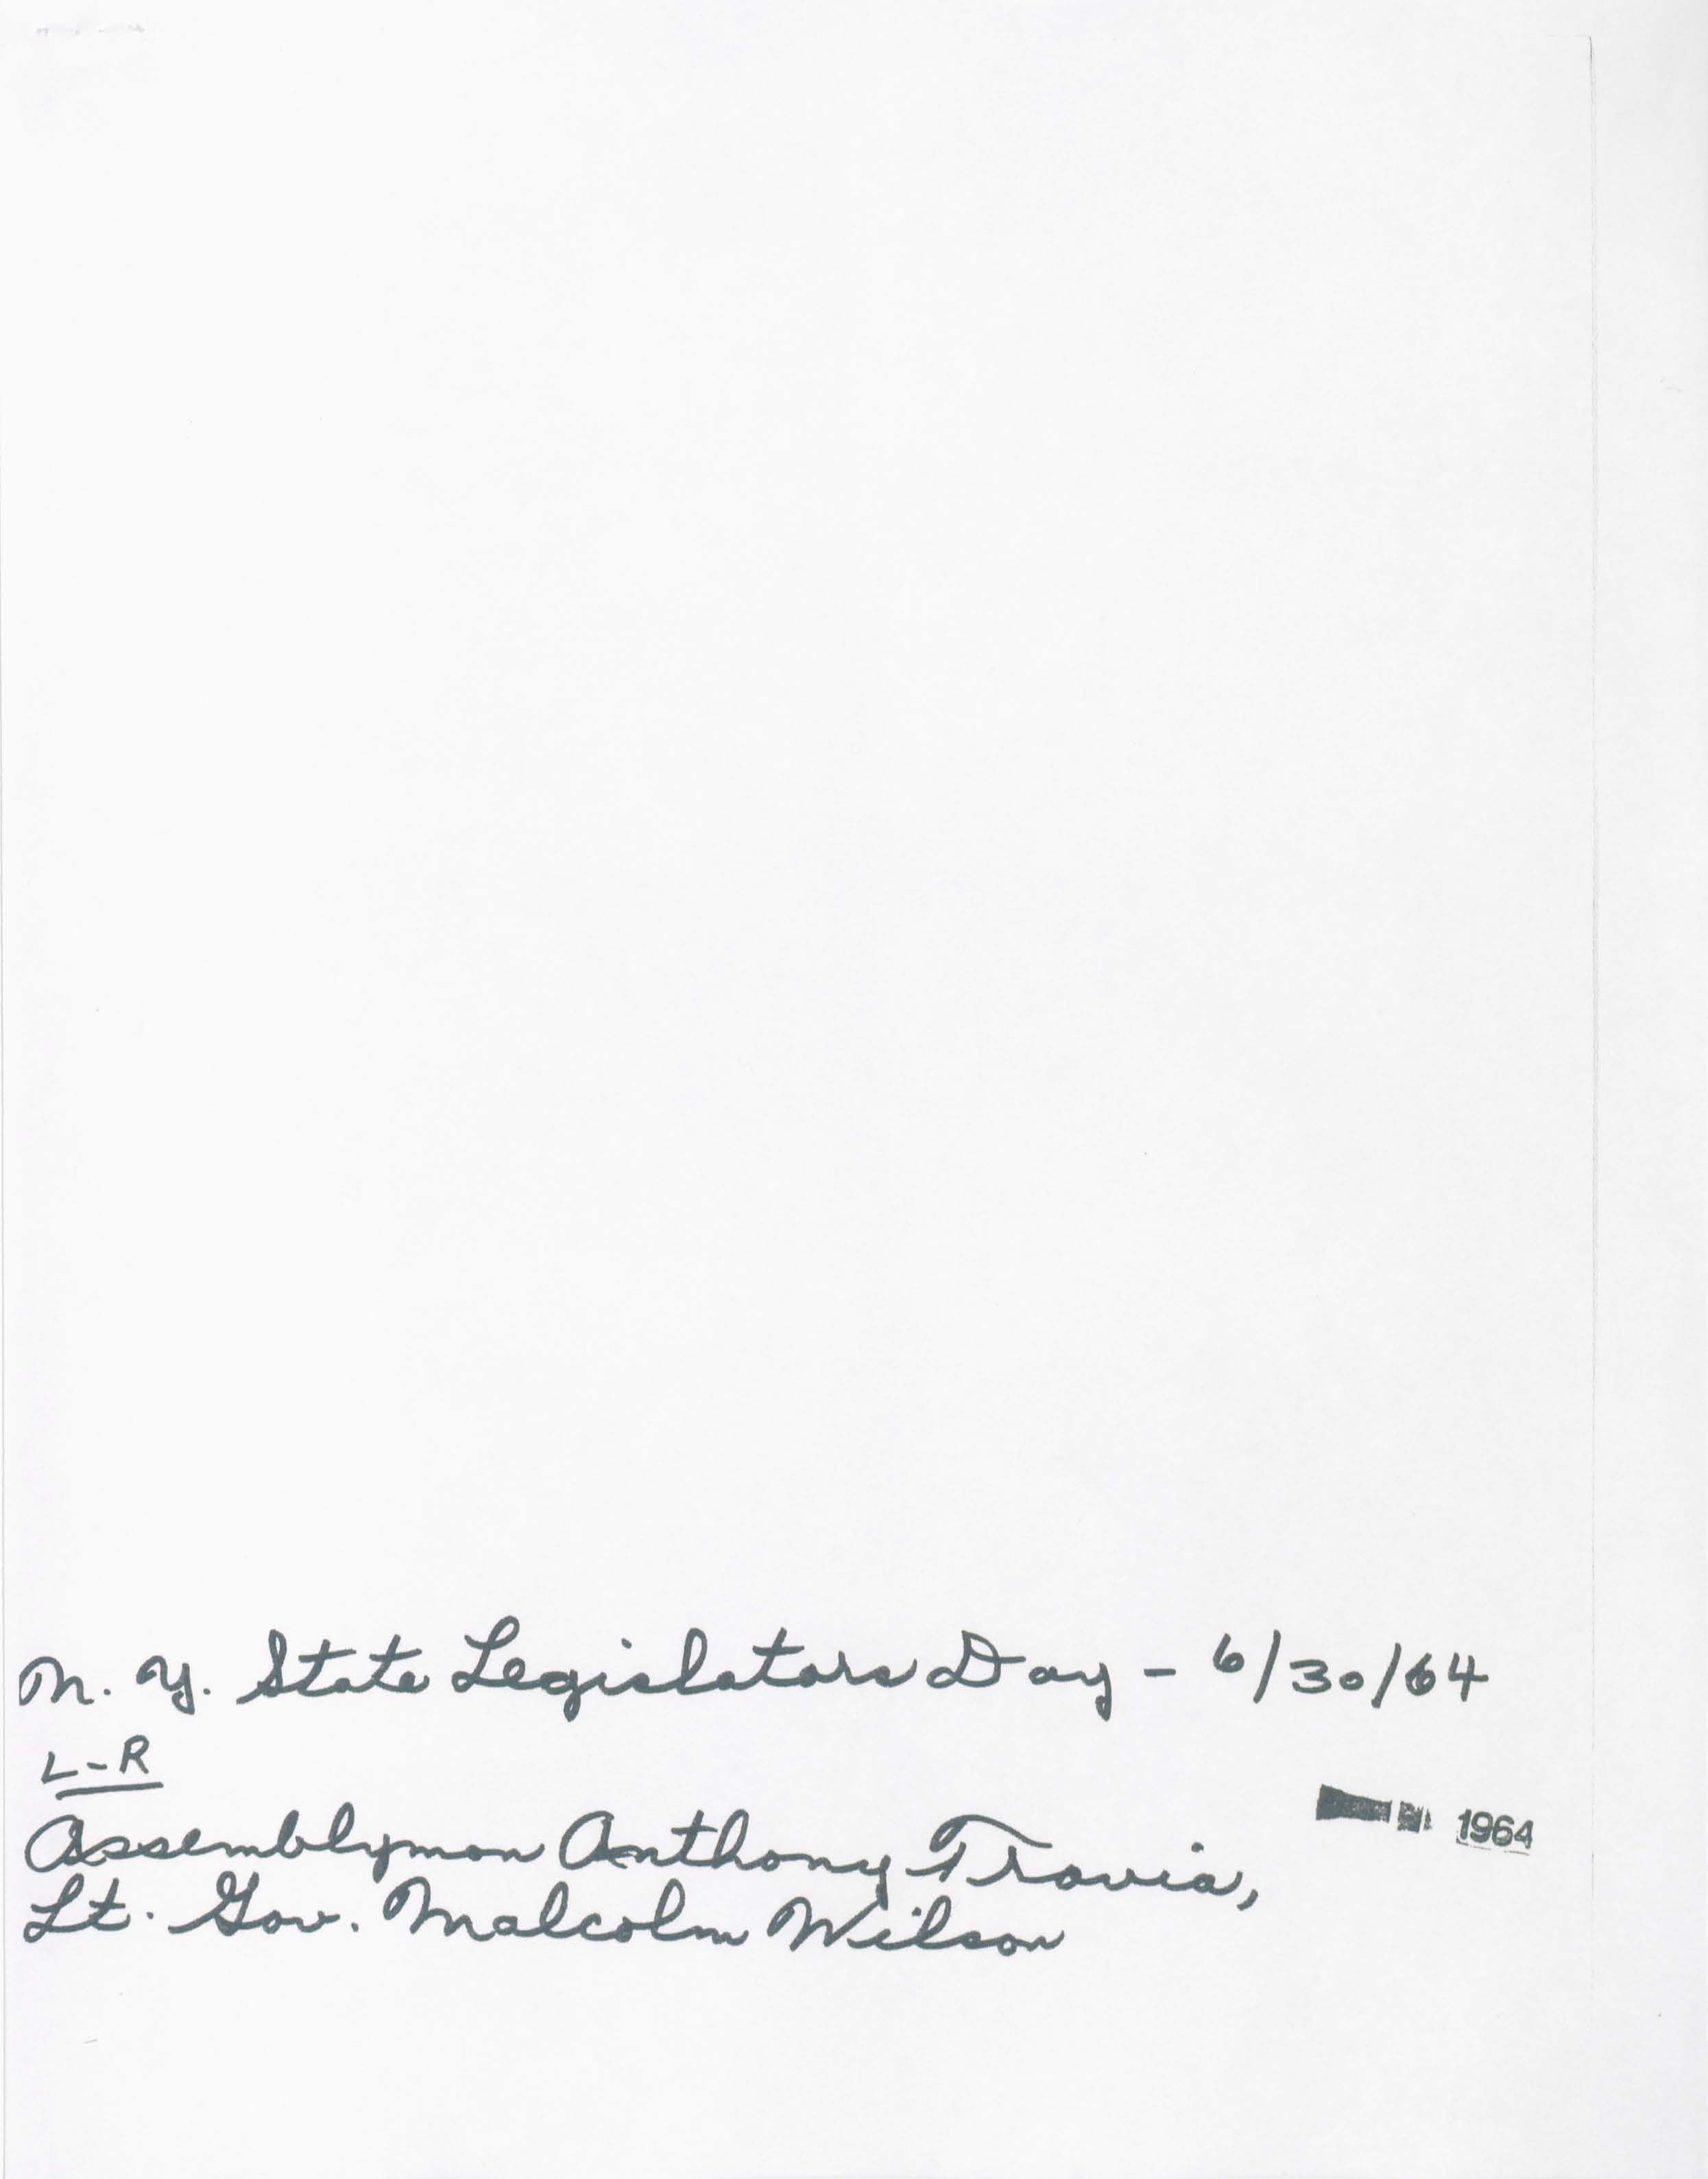 N. Y. State Legislators Day - 6/30/64
L-R
Assemblyman Anthony Travia,
1964
Lt. Gov. Malcolm Wilson